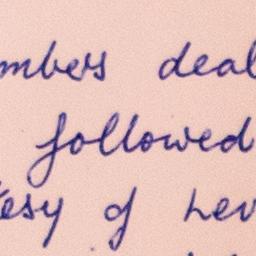 mbers deal
followed
esy of her